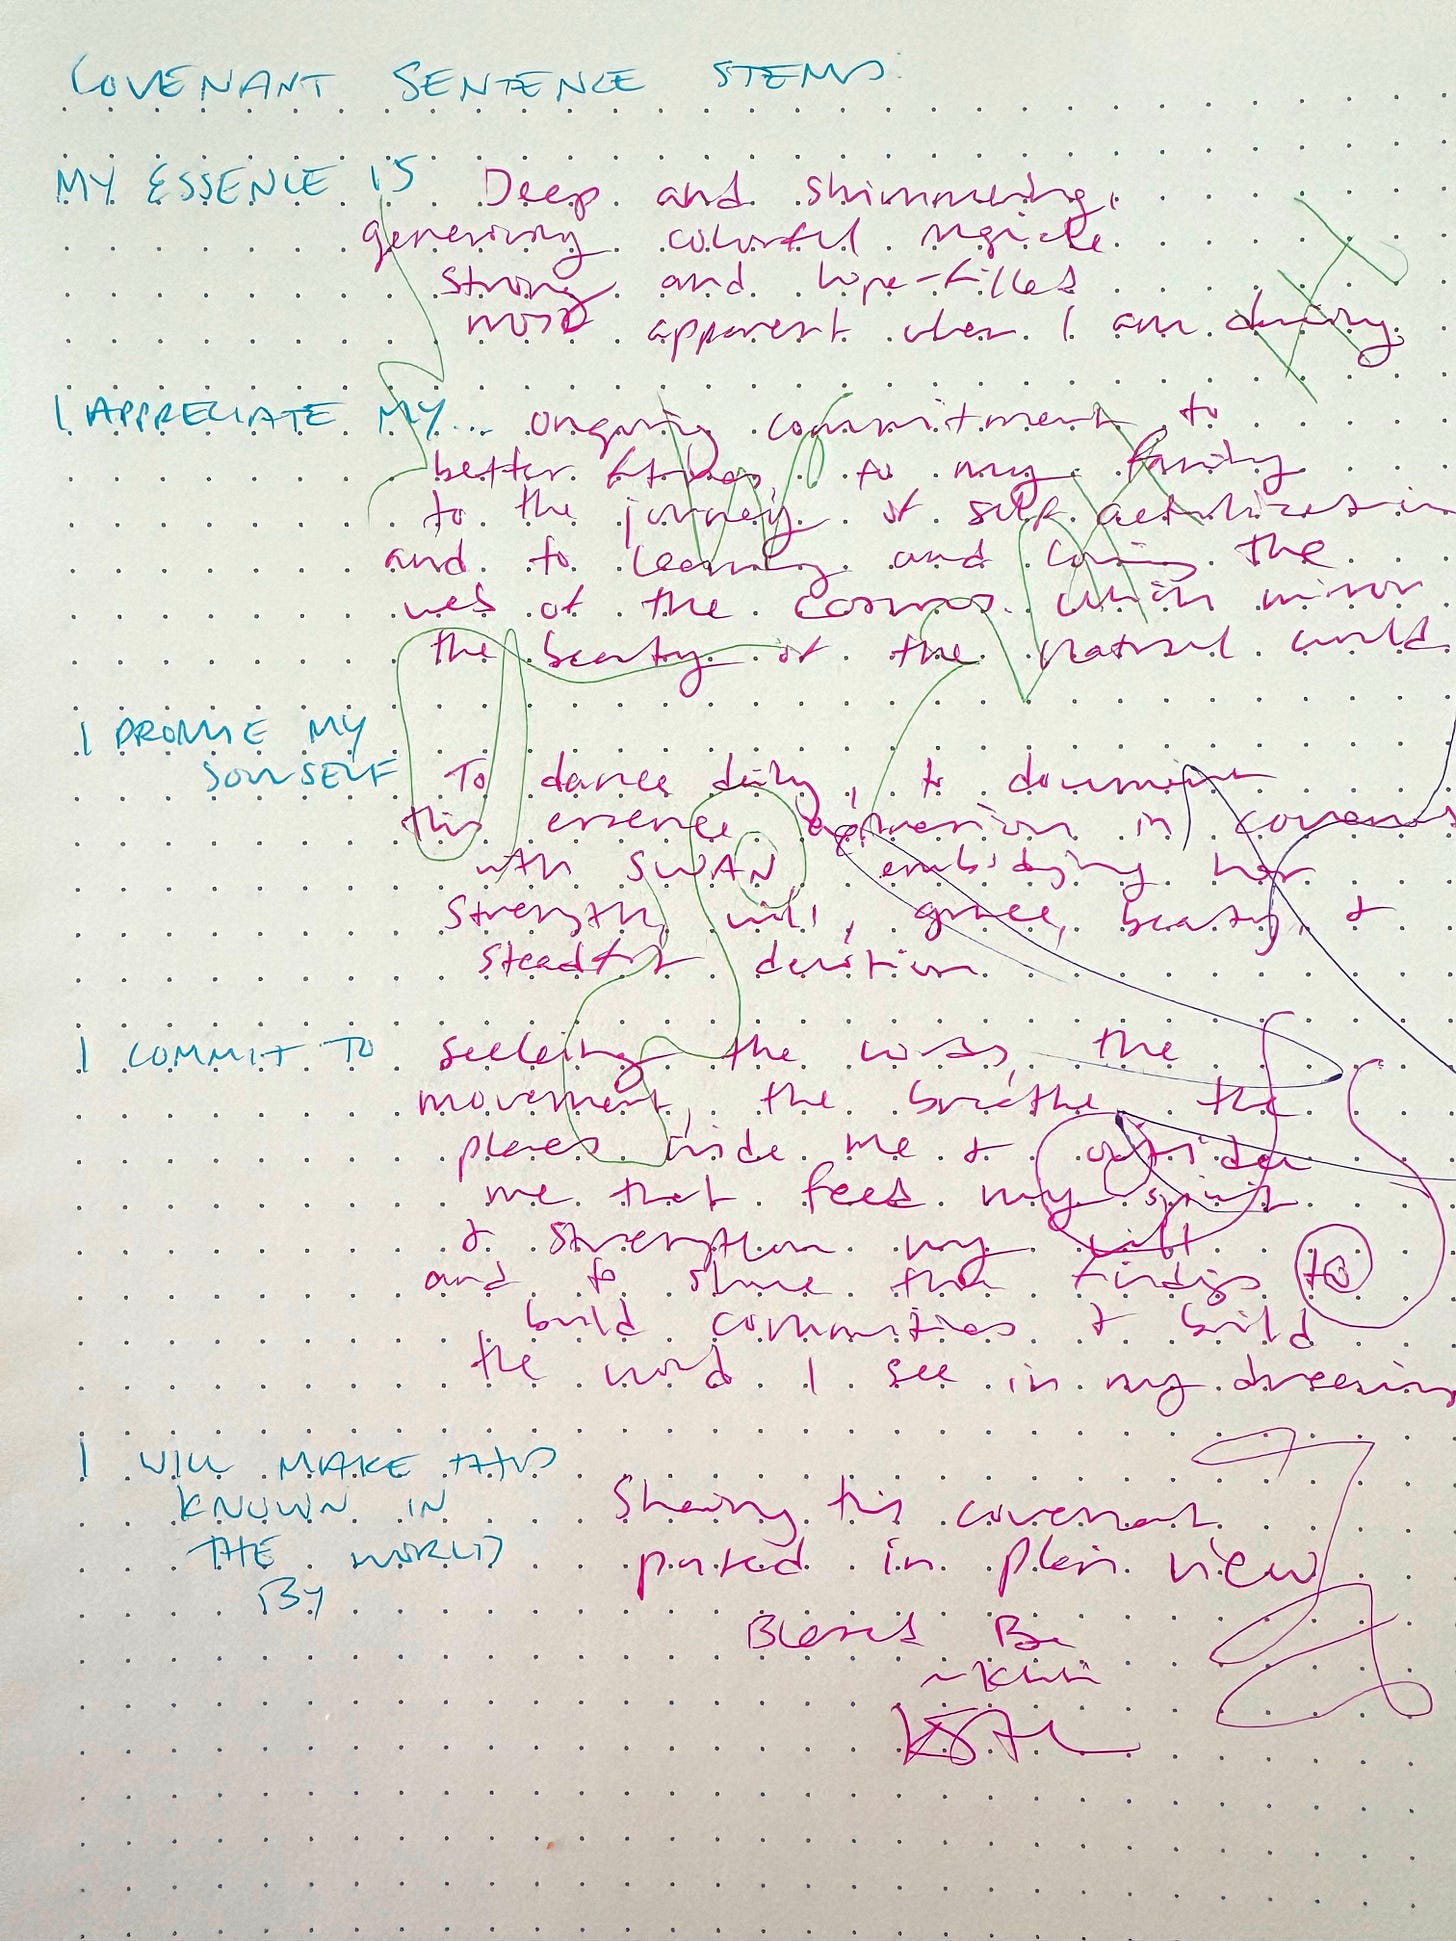 COVENANT SENTENCE STEMS:
MY ESSENCE IS Deep and shimmering,
generising colorful
strong and hope-filled
most apparent when I am dancing
I APPRECIATE MY... ongoing commitment to
better things, to my family
to the journey of self actualization
and to learning and the
web of the cosmos which mirror
the beauty of the natural world
I PROMISE MY
SOULSELF To dance daily, to document
this essence expression in covenant
with SWAN embodying her
strength, will, grace, beauty &
steadfast devotion.
I COMMIT TO seeking the words, the
movement, the breathe, the
places inside me & outside
me that feed my spirit
& strengthen my will
and to share the findings to
build communities & build
the world I see in my dreaming
I WILL MAKE THIS
KNOWN IN
THE WORLD
BY
Sharing this covenant
posted in plain view
Blessed Be